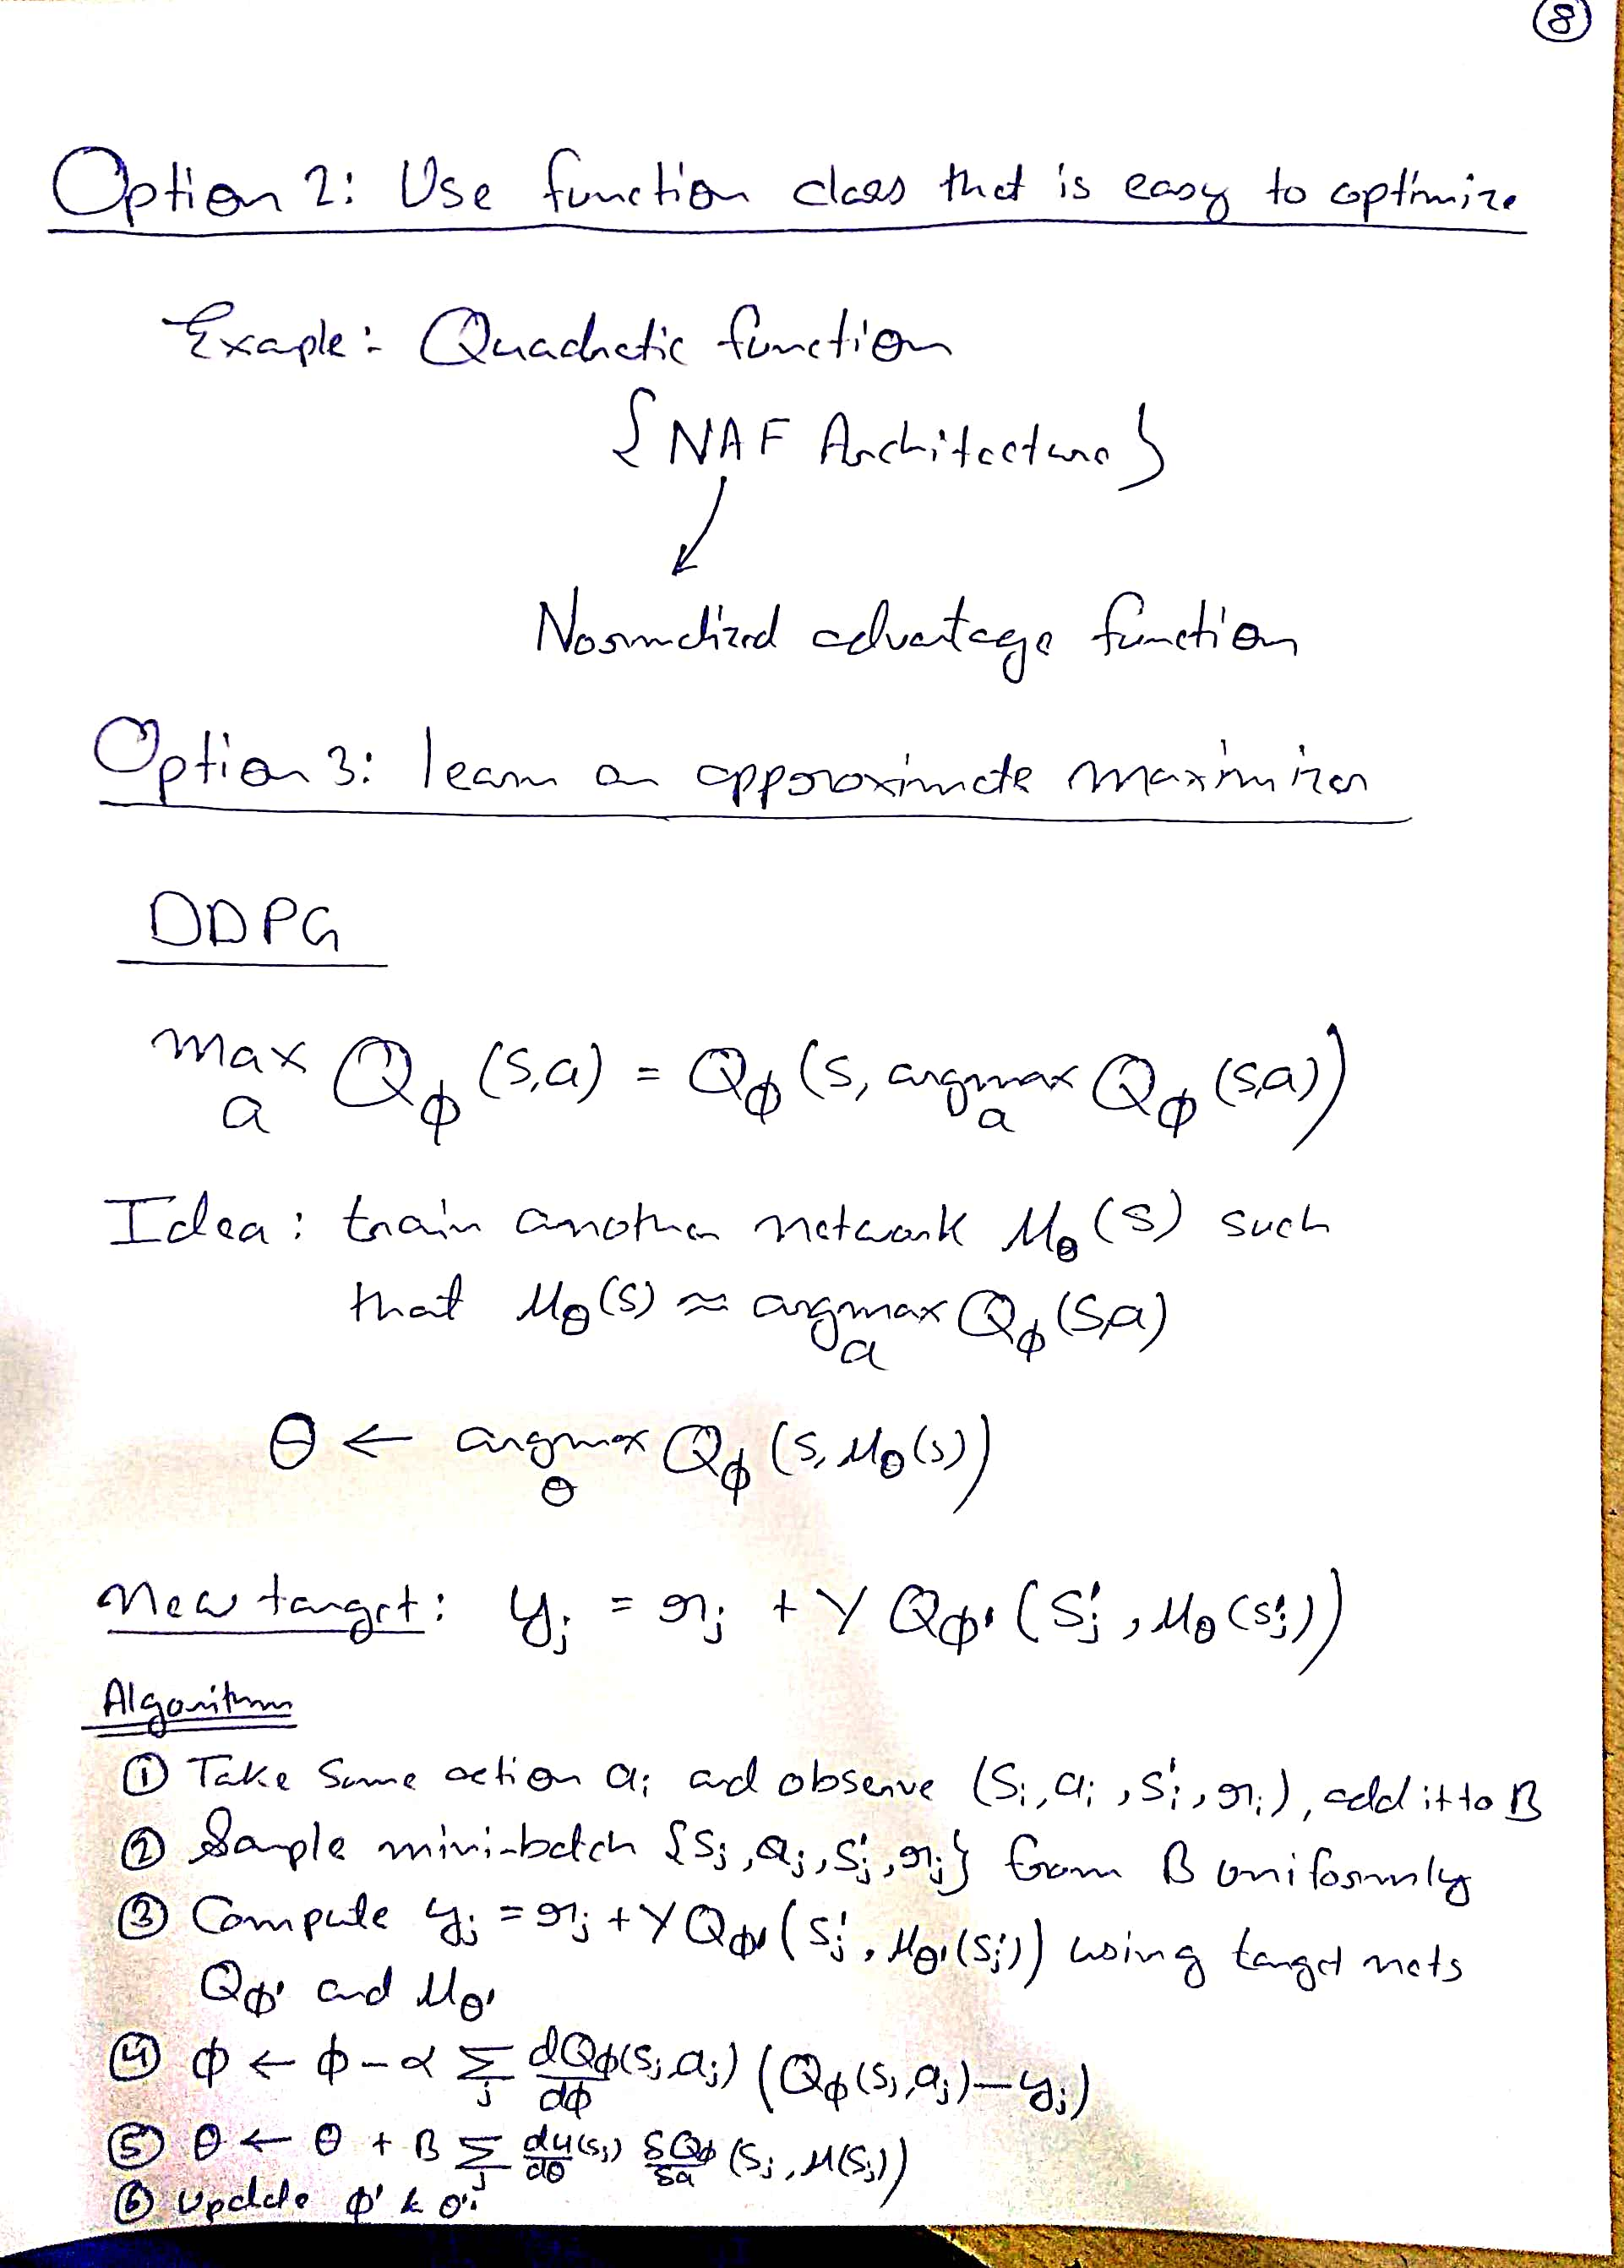 8
Option 2: Use function class that is easy to optimize
Exaple: Quadratic function
{NAF Architecture}
Normalized advantage function
Option 3: learn an approximate maximizer
DDPG
max_a Q_ϕ (s,a) = Q_ϕ (s, argmax_a Q_ϕ (s,a))
Idea: train another network μ_θ(s) such
that μ_θ(s) ≈ argmax_a Q_ϕ (s,a)
θ ← argmax_θ Q_ϕ (s, μ_θ(s))
New target: y_j = r_j + γ Q_ϕ' (s'_j, μ_θ(s'_j))
Algorithm
① Take some action a_i and observe (s_i, a_i, s'_i, r_i), add it to B
② Sample mini-batch {s_j, a_j, s'_j, r_j} from B uniformly
③ Compute y_j = r_j + γ Q_ϕ' (s'_j, μ_θ'(s'_j)) using target nets
Q_ϕ' and μ_θ'
④ ϕ ← ϕ - α Σ_j dQ_ϕ(s_j,a_j)/dϕ (Q_ϕ(s_j,a_j) - y_j)
⑤ θ ← θ + β Σ_j dμ(s_j)/dθ δQ_ϕ/δa (s_j, μ(s_j))
⑥ Update ϕ' & θ'.